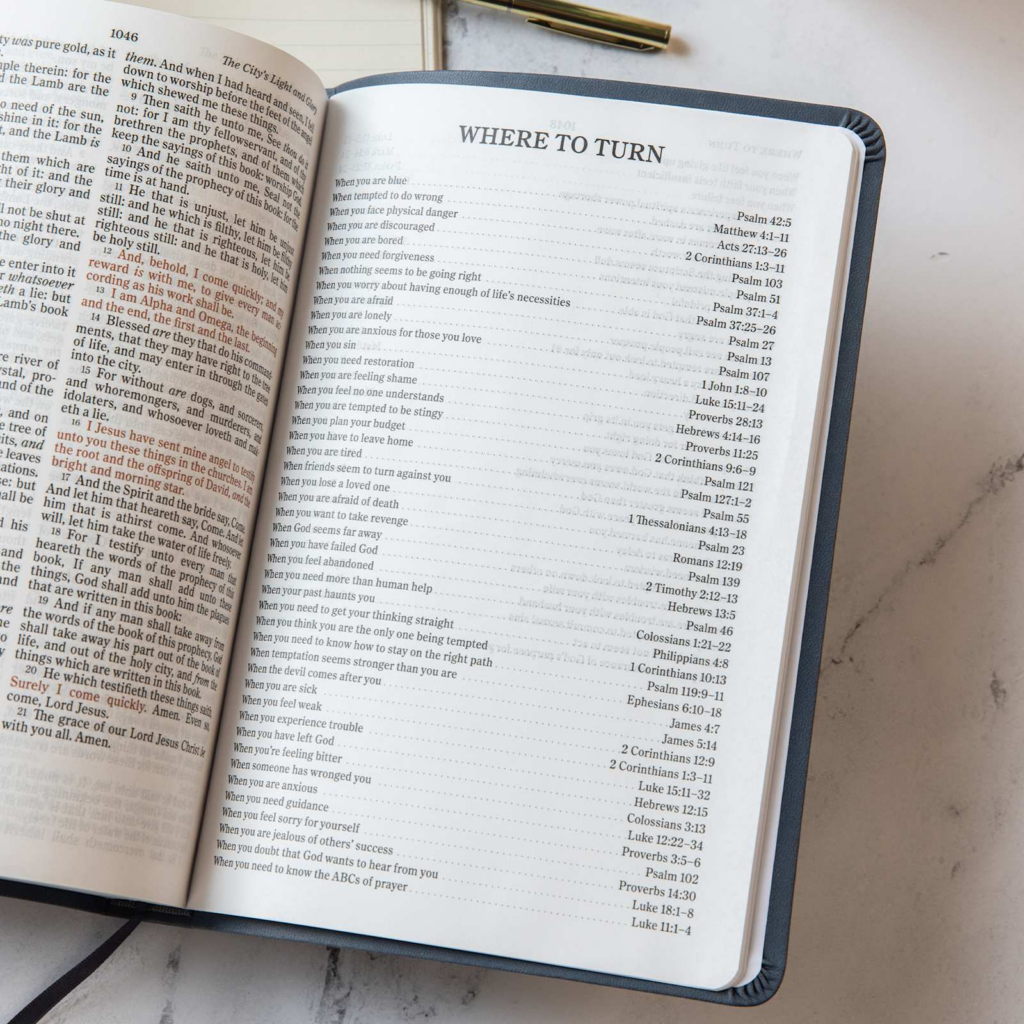 1046
The City's Light and Glory
ty was pure gold, as it
ple therein: for the
d the Lamb are the
o need of the sun,
shine in it: for the
, and the Lamb is
them which are
ght of it: and the
their glory and
ll not be shut at
no night there.
the glory and
e enter into it
r whatsoever
eth a lie: but
Lamb's book
re river of
stal, pro-
nd of the
, and on
e tree of
its, and
e leaves
ations.
se: but
all be
d his
and
the
and
them. And when I had heard and seen, I fell
down to worship before the feet of the angel
which shewed me these things.
9 Then saith he unto me, See thou do it
not: for I am thy fellowservant, and of thy
brethren the prophets, and of them which
keep the sayings of this book: worship God.
10 And he saith unto me, Seal not the
sayings of the prophecy of this book: for the
time is at hand.
11 He that is unjust, let him be unjust
still: and he which is filthy, let him be filthy
still: and he that is righteous, let him be
righteous still: and he that is holy, let him
be holy still.
12 And, behold, I come quickly; and my
reward is with me, to give every man ac-
cording as his work shall be.
13 I am Alpha and Omega, the beginning
and the end, the first and the last.
14 Blessed are they that do his command-
ments, that they may have right to the tree
of life, and may enter in through the gates
into the city.
15 For without are dogs, and sorcerers,
and whoremongers, and murderers, and
idolaters, and whosoever loveth and mak-
eth a lie.
16 I Jesus have sent mine angel to testify
unto you these things in the churches. I am
the root and the offspring of David, and the
bright and morning star.
17 And the Spirit and the bride say, Come.
And let him that heareth say, Come. And let
him that is athirst come. And whosoever
will, let him take the water of life freely.
18 For I testify unto every man that
heareth the words of the prophecy of this
book, If any man shall add unto these
things, God shall add unto him the plagues
that are written in this book:
19 And if any man shall take away from
the words of the book of this prophecy, God
shall take away his part out of the book of
life, and out of the holy city, and from the
things which are written in this book.
20 He which testifieth these things saith,
Surely I come quickly. Amen. Even so,
come, Lord Jesus.
21 The grace of our Lord Jesus Christ be
with you all. Amen.
WHERE TO TURN
When you are blue Psalm 42:5
When tempted to do wrong Matthew 4:1–11
When you face physical danger Acts 27:13–26
When you are discouraged 2 Corinthians 1:3–11
When you are bored Psalm 103
When you need forgiveness Psalm 51
When nothing seems to be going right Psalm 37:1–4
When you worry about having enough of life's necessities Psalm 37:25–26
When you are afraid Psalm 27
When you are lonely Psalm 13
When you are anxious for those you love Psalm 107
When you sin 1 John 1:8–10
When you need restoration Luke 15:11–24
When you are feeling shame Proverbs 28:13
When you feel no one understands Hebrews 4:14–16
When you are tempted to be stingy Proverbs 11:25
When you plan your budget 2 Corinthians 9:6–9
When you have to leave home Psalm 121
When you are tired Psalm 127:1–2
When friends seem to turn against you Psalm 55
When you lose a loved one 1 Thessalonians 4:13–18
When you are afraid of death Psalm 23
When you want to take revenge Romans 12:19
When God seems far away Psalm 139
When you have failed God 2 Timothy 2:12–13
When you feel abandoned Hebrews 13:5
When you need more than human help Psalm 46
When your past haunts you Colossians 1:21–22
When you need to get your thinking straight Philippians 4:8
When you think you are the only one being tempted 1 Corinthians 10:13
When you need to know how to stay on the right path Psalm 119:9–11
When temptation seems stronger than you are Ephesians 6:10–18
When the devil comes after you James 4:7
When you are sick James 5:14
When you feel weak 2 Corinthians 12:9
When you experience trouble 2 Corinthians 1:3–11
When you have left God Luke 15:11–32
When you're feeling bitter Hebrews 12:15
When someone has wronged you Colossians 3:13
When you are anxious Luke 12:22–34
When you need guidance Proverbs 3:5–6
When you feel sorry for yourself Psalm 102
When you are jealous of others' success Proverbs 14:30
When you doubt that God wants to hear from you Luke 18:1–8
When you need to know the ABCs of prayer Luke 11:1–4